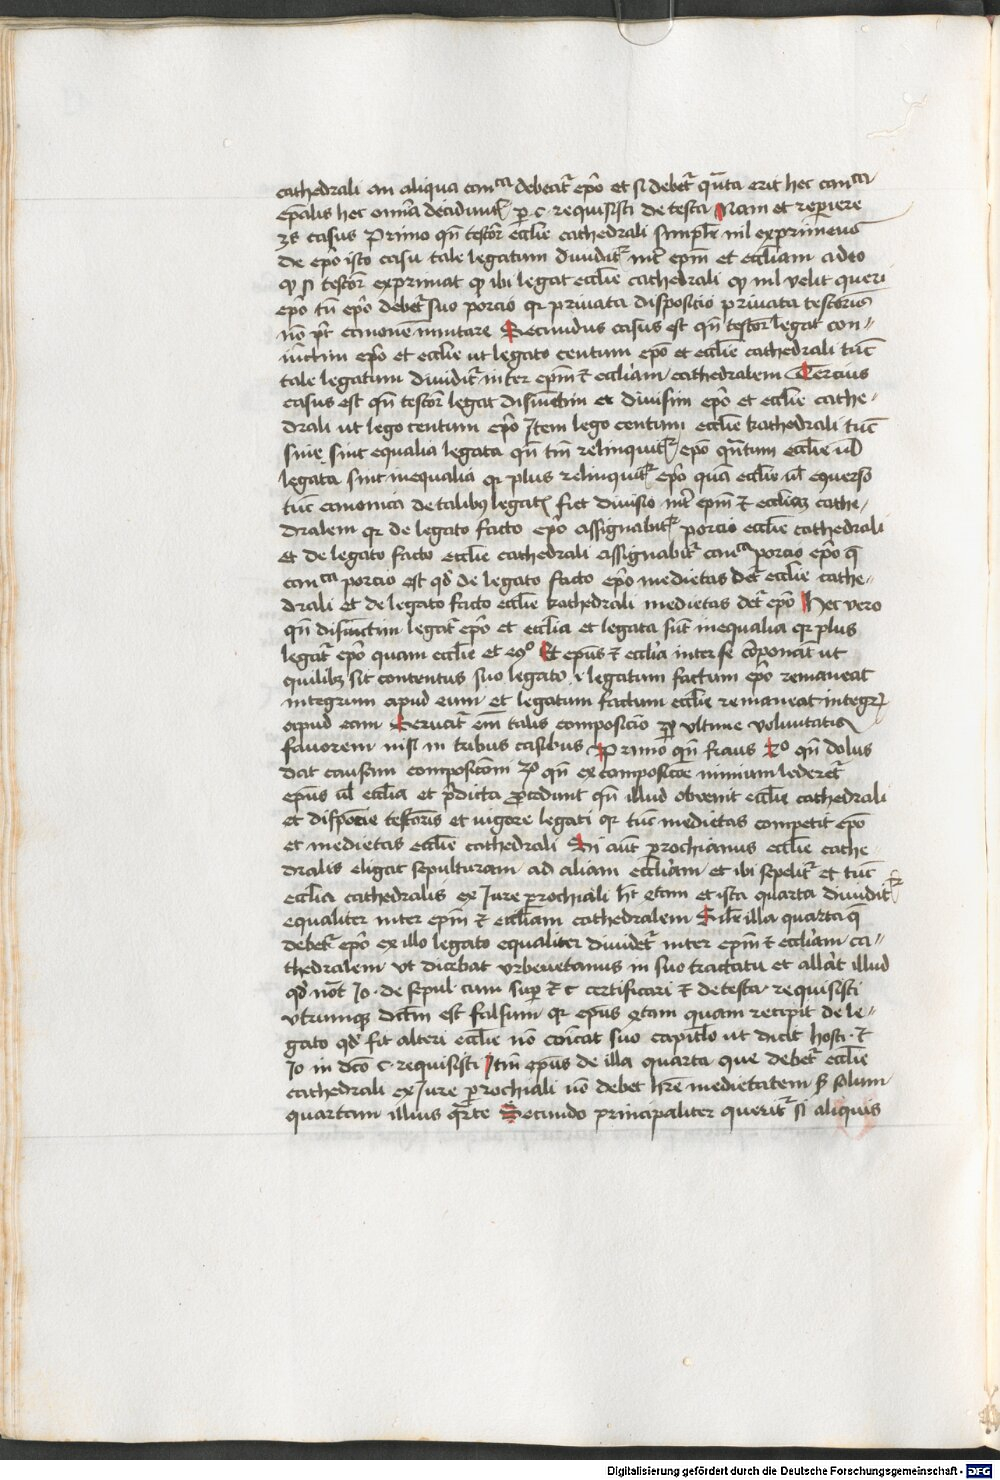 cathedrali an aliqua canᶜᵃ debeat̉ ep̄o et si debet̉ qn̄ta erit hec canᶜᵃ
ep̄alis hec omn̄ia decidunt̉ p c requisisti de testa Nam et reperiere
3s casus Primo qn̄ testor̄ eccl̄ie cathedrali simpl̄r nil exprimens
de ep̄o isto casu tale legatum diuidit̉ int̄ ep̄m et eccl̄iam adeo
qꝫ si testor̄ exprimat qꝫ ibi legat eccl̄ie cathedrali qꝫ nil velit queri
ep̄o tn̄ ep̄o debet̉ suo porcio qr priuata disposicio priuata testoris
nō pt̄ canonem mutare Secundus casus est qn̄ testor legat con„
iūctim ep̄o et eccl̄ie ut legato centum ep̄o et eccl̄ie cathedrali tūc
tale legatum diuidit̉ inter ep̄m ⁊ eccl̄iam cathedralem Tercius
casus est qn̄ testor̄ legat disiūctim et diuisim ep̄o et eccl̄ie cathe„
drali ut lego centum ep̄o Item lego centum eccl̄ie kathedrali tūc
siue sint equalia legata qn̄ tm̄ relinquit̉ ep̄o qn̄tum eccl̄ie ul̄
legata sint inequalia qr plus relinquit̉ ep̄o quā eccl̄ie ul̄ eqverso
tūc canonica de talibꝫ legat̄ fiet diuisio int̄ ep̄m ⁊ eccl̄iam cathe„
dralem qr de legato facto ep̄o assignabit̉ porcio eccl̄ie cathedrali
et de legato facto eccl̄ie cathedrali assignabit̉ canᶜᵃ porcio ep̄o q̄
canᶜᵃ porcio est qd̄ de legato facto ep̄o medietas det̉ eccl̄ie cathe„
drali et de legato facto eccl̄ie kathedrali medietas det̉ ep̄o Hec vero
qn̄ disiūctim legat̉ ep̄o et eccl̄ia et legata sūt inequalia qr plus
legat̉ ep̄o quam eccl̄ie et eqº Et ep̄us ⁊ eccl̄ia inter se cōponāt ut
quilibꝫ sit contentus suo legato ⁊ legatum factum ep̄o remaneat
integrum apud eum et legatum factum eccl̄ie remaneat integrꝫ
apud eam Seruat̉ em̄ talis composicio ꝓ ultime voluntatis
fauorem nisi in tribus casibus Primo qn̄ fraus 2º qn̄ dolus
dat causam composicōni 3º qn̄ ex composicōne nimium lederet̉
ep̄us ul̄ eccl̄ia et p̄dicta ꝓcedunt qn̄ illud obuenit eccl̄ie cathedrali
et disposicōe testoris et uigore legati qr tūc medietas competit ep̄o
et medietas eccl̄ie cathedrali Si aūt ꝑrochianus eccl̄ie cathe„
dralis eligat sepulturam ad aliam eccl̄iam et ibi sepelit̉ et tūc
eccl̄ia cathedralis ex Iure ꝑrochiali h̄t qrtam et ista quarta diuidit̉
equaliter inter ep̄m ⁊ eccl̄iam cathedralem Silr illa quarta q̄
debet̉ ep̄o ex illo legato equaliter diuidet̉ inter ep̄m ⁊ eccl̄iam ca„
thedralem ut dicebat vrbeuetanus in suo tractatu et all̄at illud
qd̄ not̄ Io · de sepul · cum suꝑ ⁊ c certificari ⁊ de testa · requisisti
vtrumqꝫ dictm̄ est falsum qr ep̄us qrtam quam recipit de le„
gato qd̄ fit alteri eccl̄ie nō cōīcat suo capitl̄o ut dicit hosti · ⁊
Io in dc̄o c · requisisti Itm̄ ep̄us de illa quarta que debet̉ eccl̄ie
cathedrali ex Iure ꝑrochiali nō debet hr̄e medietatem sꝫ solum
quartam illius qrte Secundo principaliter querit̉ si aliquis
Digitalisierung gefördert durch die Deutsche Forschungsgemeinschaft - DFG